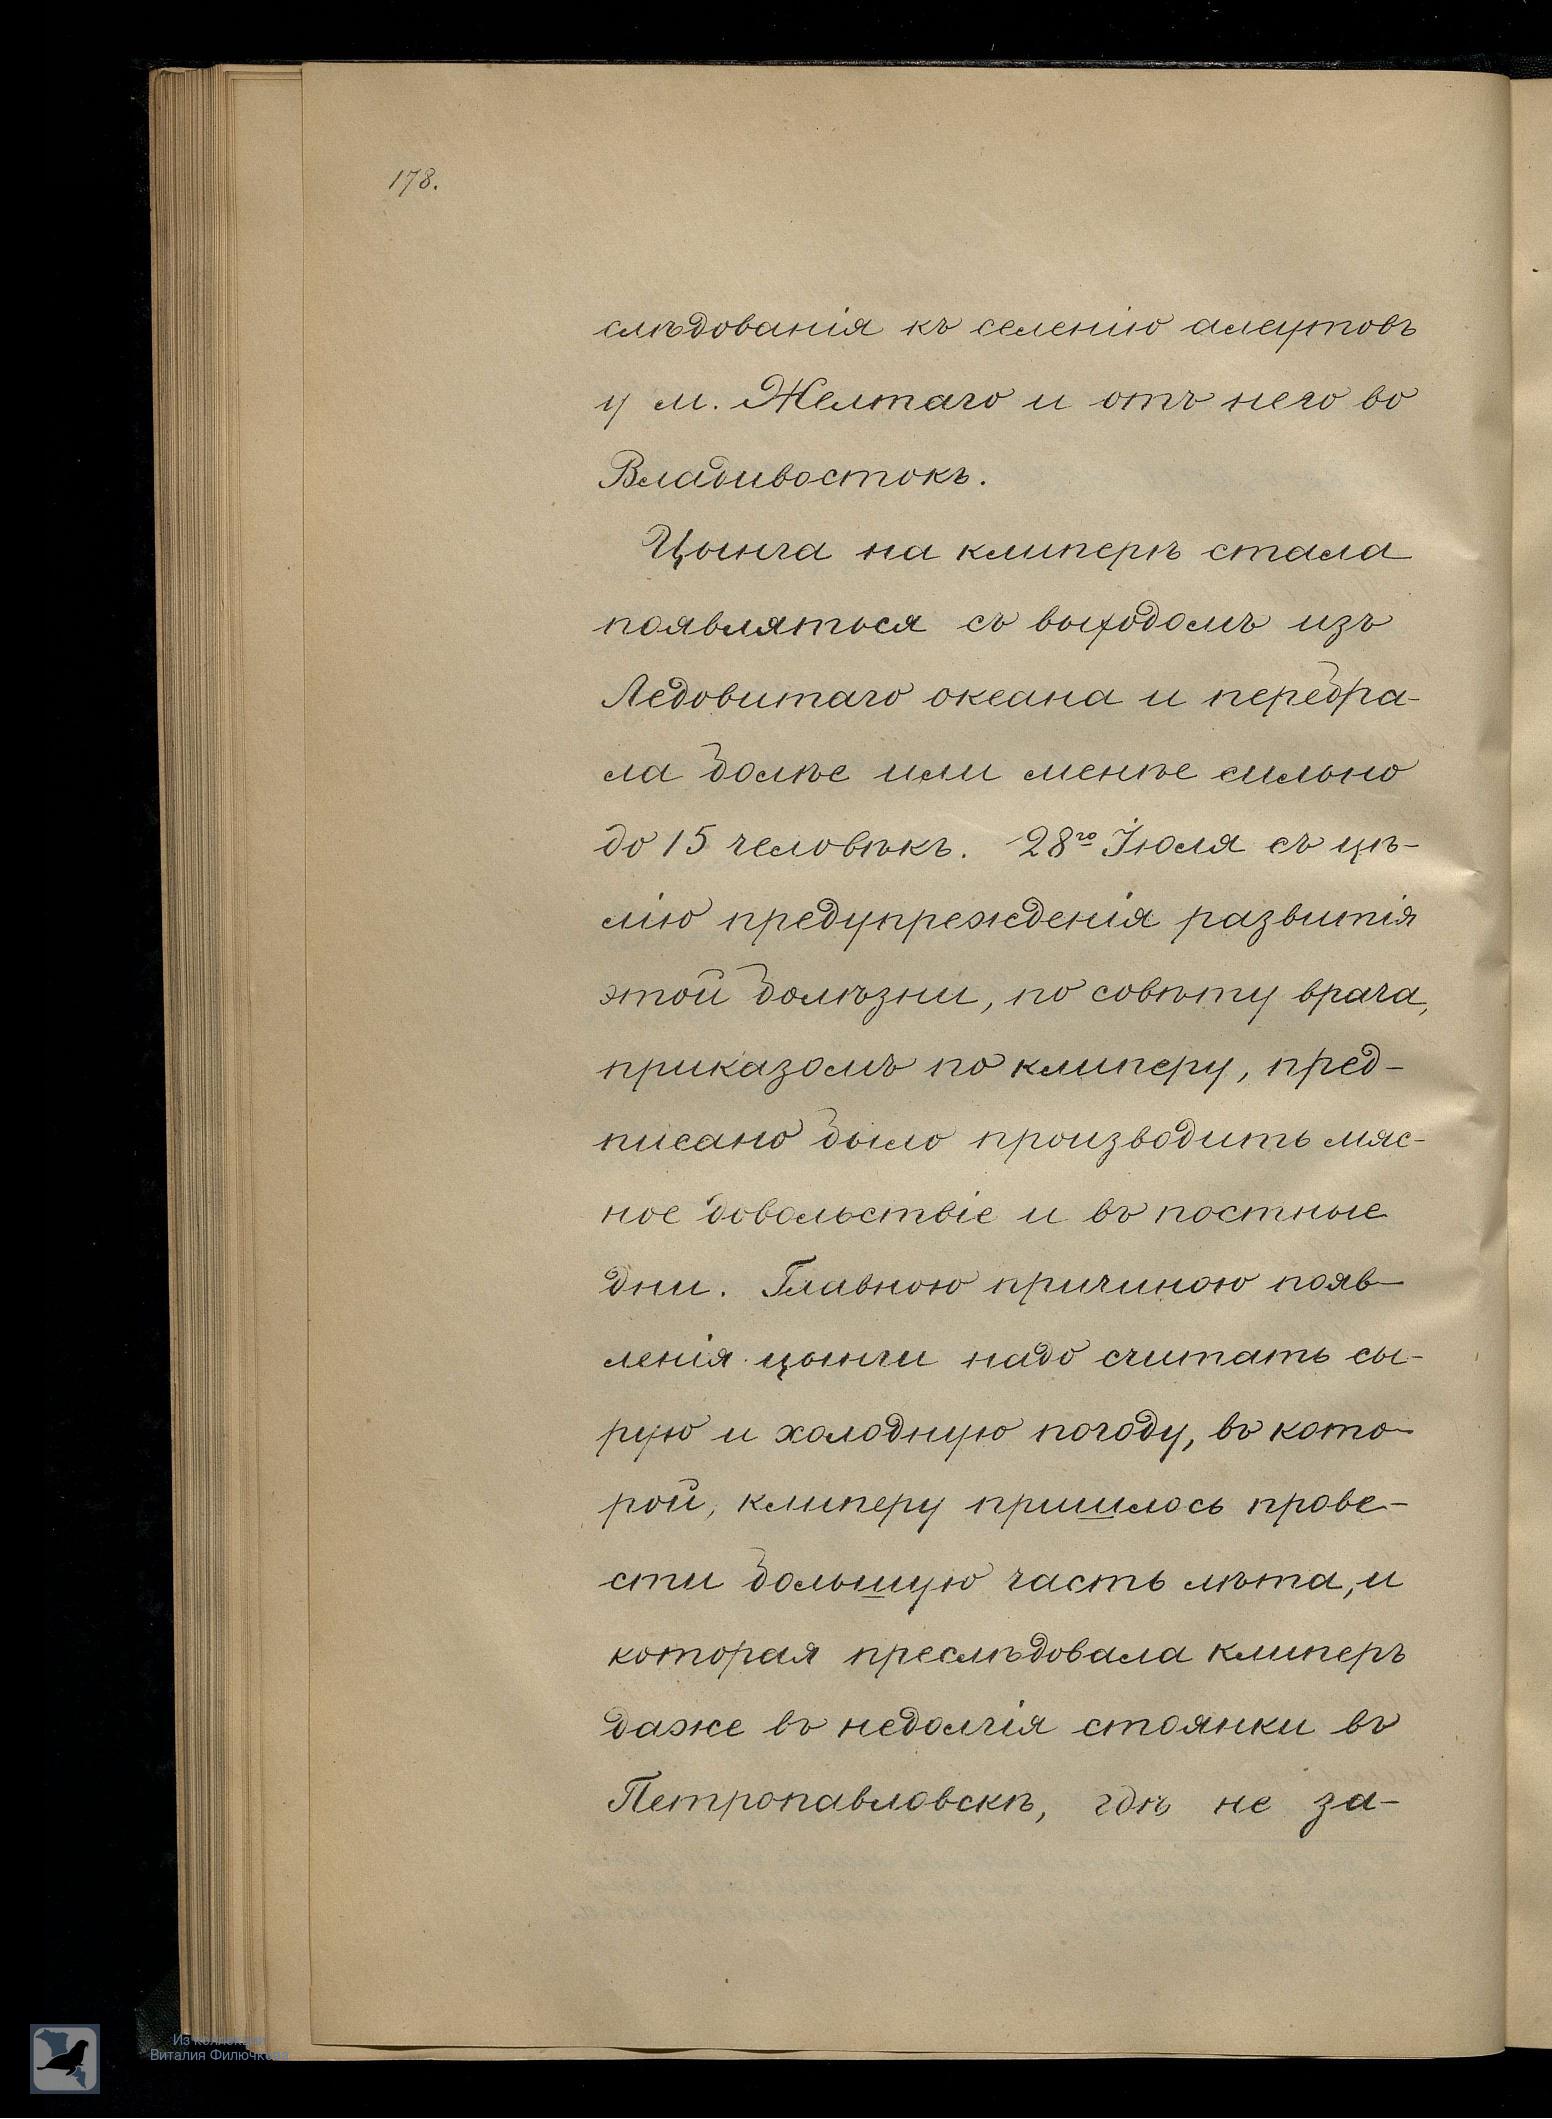 178.
слѣдованія къ селенію алеутовъ
у м. Желтаго и отъ него во
Владивостокъ.
Цынга на клиперѣ стала
появляться съ выходомъ изъ
Ледовитаго океана и перебра-
ла болѣе или менѣе сильно
до 15 человѣкъ. 28го Іюля съ цѣ-
лію предупрежденія развитія
этой болѣзни, по совѣту врача,
приказомъ по клиперу, пред-
писано было производить мяс-
ное довольствіе и въ постные
дни. Главною причиною появ-
ленія цынги надо считать сы-
рую и холодную погоду, въ кото-
рой, клиперу пришлось прове-
сти большую часть лѣта, и
которая преслѣдовала клиперъ
даже въ недолгія стоянки въ
Петропавловскѣ, гдѣ не за-
Из коллекции
Виталия Филючкова